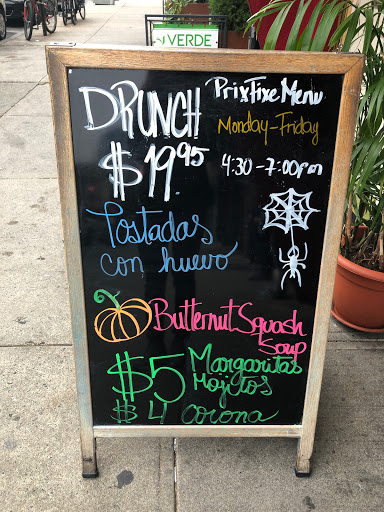 VERDE
DRUNCH
$19.95
Prix Fixe Menu
Monday-Friday
4:30-7:00pm
Tostadas
con huevo
Butternut Squash
Soup
$5 Margaritas
Mojitos
$4 corona